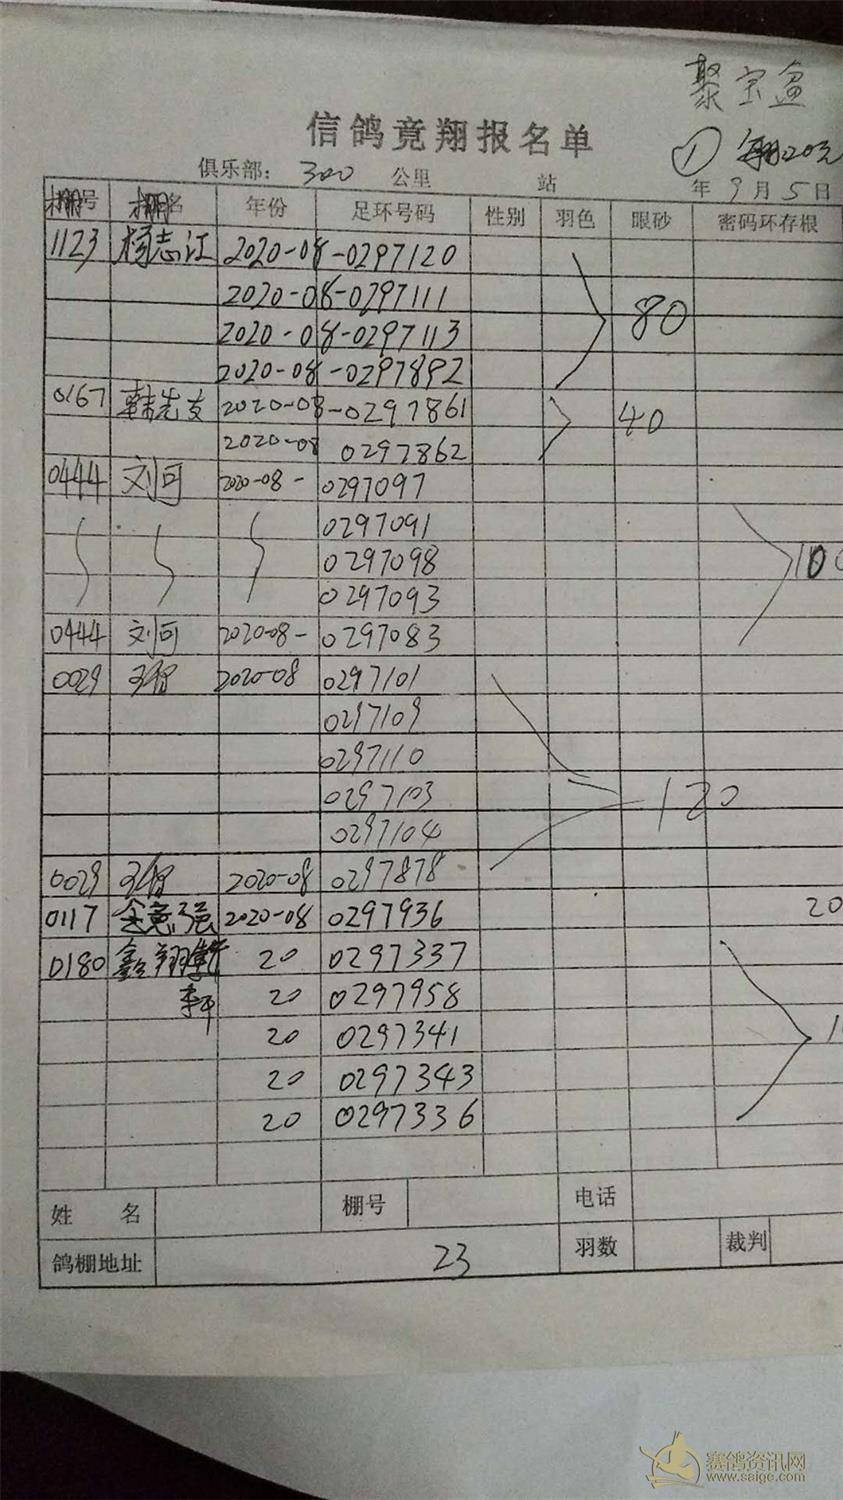 聚宝盆
信鸽竟翔报名单
① 每羽20元
俱乐部: 300 公里 站 年 9 月 5 日
棚号 棚名 年份 足环号码 性别 羽色 眼砂 密码环存根
1123 杨志江 2020-08-0297120
2020-08-0297111
2020-08-0297113 80
2020-08-0297892
0167 韩先支 2020-08-0297861 40
2020-08 0297862
0444 刘可 2020-08- 0297097
0297091
0297098 100
0297093
0444 刘可 2020-08- 0297083
0029 2020-08 0297101
0297109
0297110
0297103 120
0297104
0029 2020-08 0297878
0117 金意强 2020-08 0297936 20
0180 鑫翔 20 0297337
李平 20 0297958
20 0297341
20 0297343
20 0297336
姓 名 棚号 电话
鸽棚地址 23 羽数 裁判
赛鸽资讯网
www.saige.com